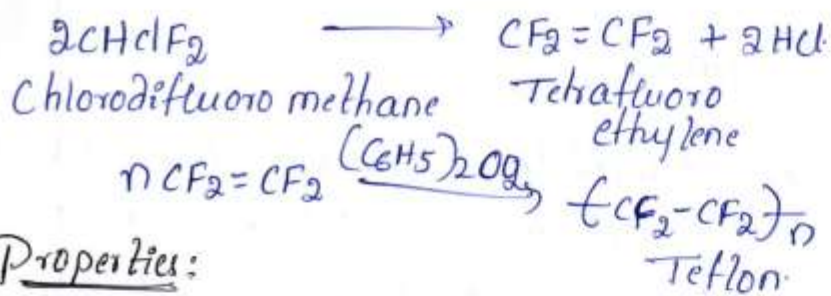 2CHClF2 ⟶ CF2 = CF2 + 2HCl.
Chlorodifluoro methane Tetrafluoro
ethylene
n CF2 = CF2 (C6H5)2O2 ⟶ (CF2-CF2)n
Teflon.
Properties: